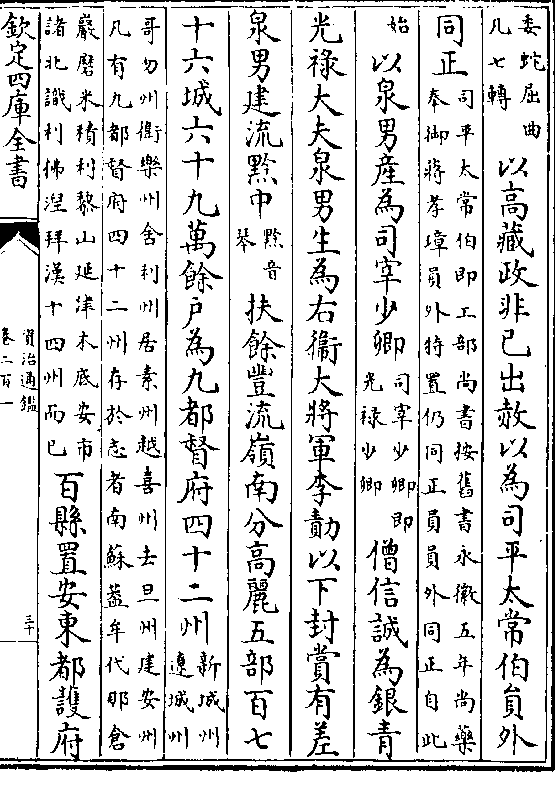 委蛇屈曲
凡七轉
以高藏政非己出赦以為司平太常伯員外
同正
司平太常伯即工部尚書按舊書永徽五年尚藥
奉御蔣孝璋員外特置仍同正員員外同正自此
始
以泉男産為司宰少卿
司宰少卿即
光祿少卿
僧信誠為銀青
光祿大夫泉男生為右衞大將軍李勣以下封賞有差
泉男建流黔中
黔音
琴
扶餘豐流嶺南分高麗五部百七
十六城六十九萬餘戶為九都督府四十二州
新城州
遼城州
哥勿州衞樂州舍利州居素州越喜州去旦州建安州
凡有九都督府四十二州存於志者南蘇蓋牟代那倉
巖磨米積利黎山延津木底安市
諸北識利佛湼拜漢十四州而已
百縣置安東都護府
欽定四庫全書
資治通鑑
卷二百一
三十